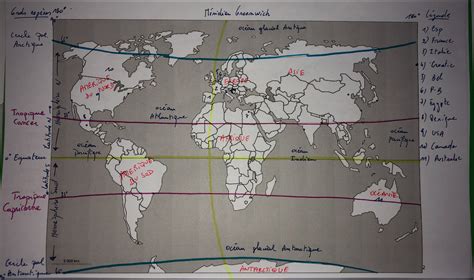 180°
Méridien Greenwich
180°
Légende
Cercle pol
Arctique
océan glacial Arctique
1) Esp
2) France
3) Italie
4) Croatie
5) Bel
7) Egypte
9) USA
10) Canada
AMERIQUE
DU NORD
ASIE
Tropique
Cancer
océan
Atlantique
AFRIQUE
océan
Pacifique
océan
Pacifique
Equateur
océan
Indien
AMERIQUE
DU SUD
OCEANIE
Tropique
Capricorne
Cercle pol
Antarctique
océan glacial Antarctique
ANTARCTIQUE